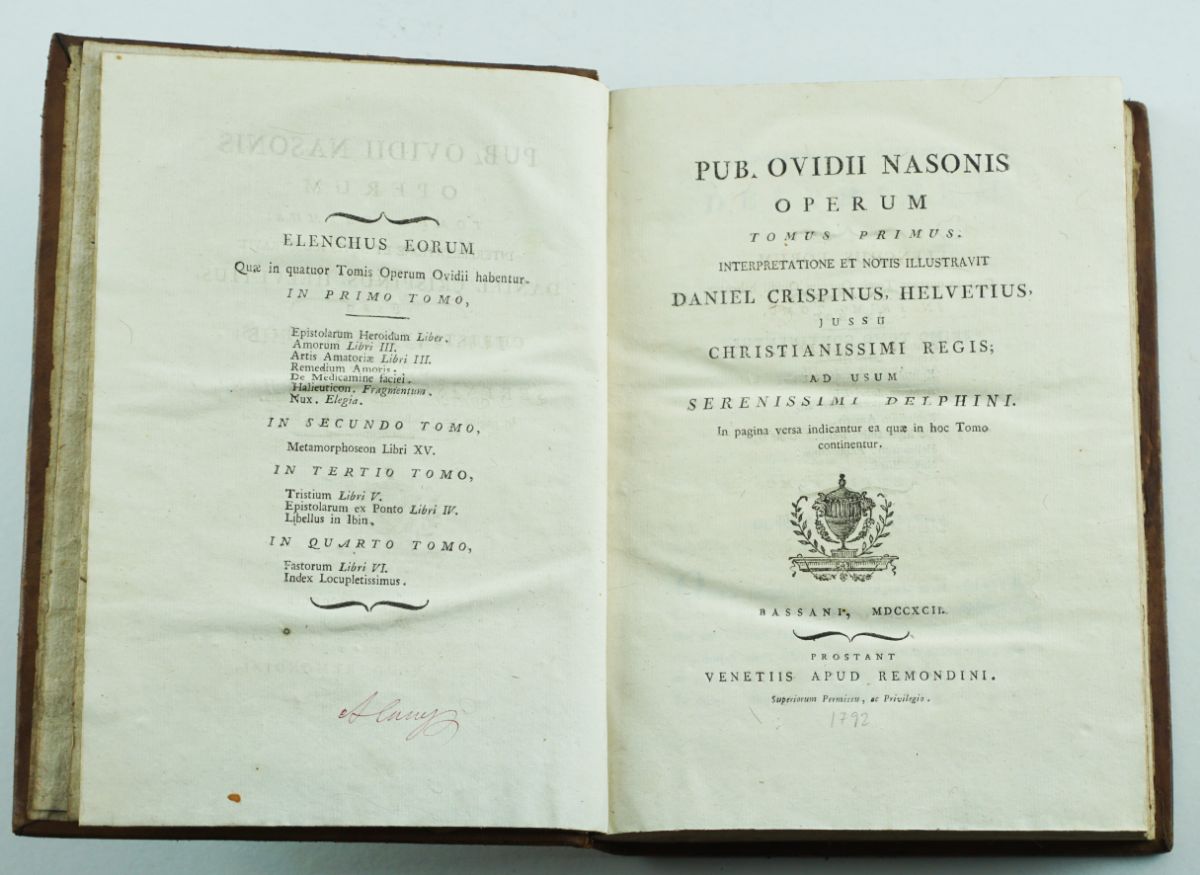 ELENCHUS EORUM
Quæ in quatuor Tomis Operum Ovidii habentur.
IN PRIMO TOMO,
Epistolarum Heroidum Liber.
Amorum Libri III.
Artis Amatoriæ Libri III.
Remedium Amoris.
De Medicamine faciei.
Halieuticon. Fragmentum.
Nux. Elegia.
IN SECUNDO TOMO,
Metamorphoseon Libri XV.
IN TERTIO TOMO,
Tristium Libri V.
Epistolarum ex Ponto Libri IV.
Libellus in Ibin.
IN QUARTO TOMO,
Fastorum Libri VI.
Index Locupletissimus.
PUB. OVIDII NASONIS
OPERUM
TOMUS PRIMUS.
INTERPRETATIONE ET NOTIS ILLUSTRAVIT
DANIEL CRISPINUS, HELVETIUS,
JUSSU
CHRISTIANISSIMI REGIS;
AD USUM
SERENISSIMI DELPHINI.
In pagina versa indicantur ea quæ in hoc Tomo
continentur.
BASSANI, MDCCXCII.
PROSTANT
VENETIIS APUD REMONDINI.
Superiorum Permissu, ac Privilegio.
1792